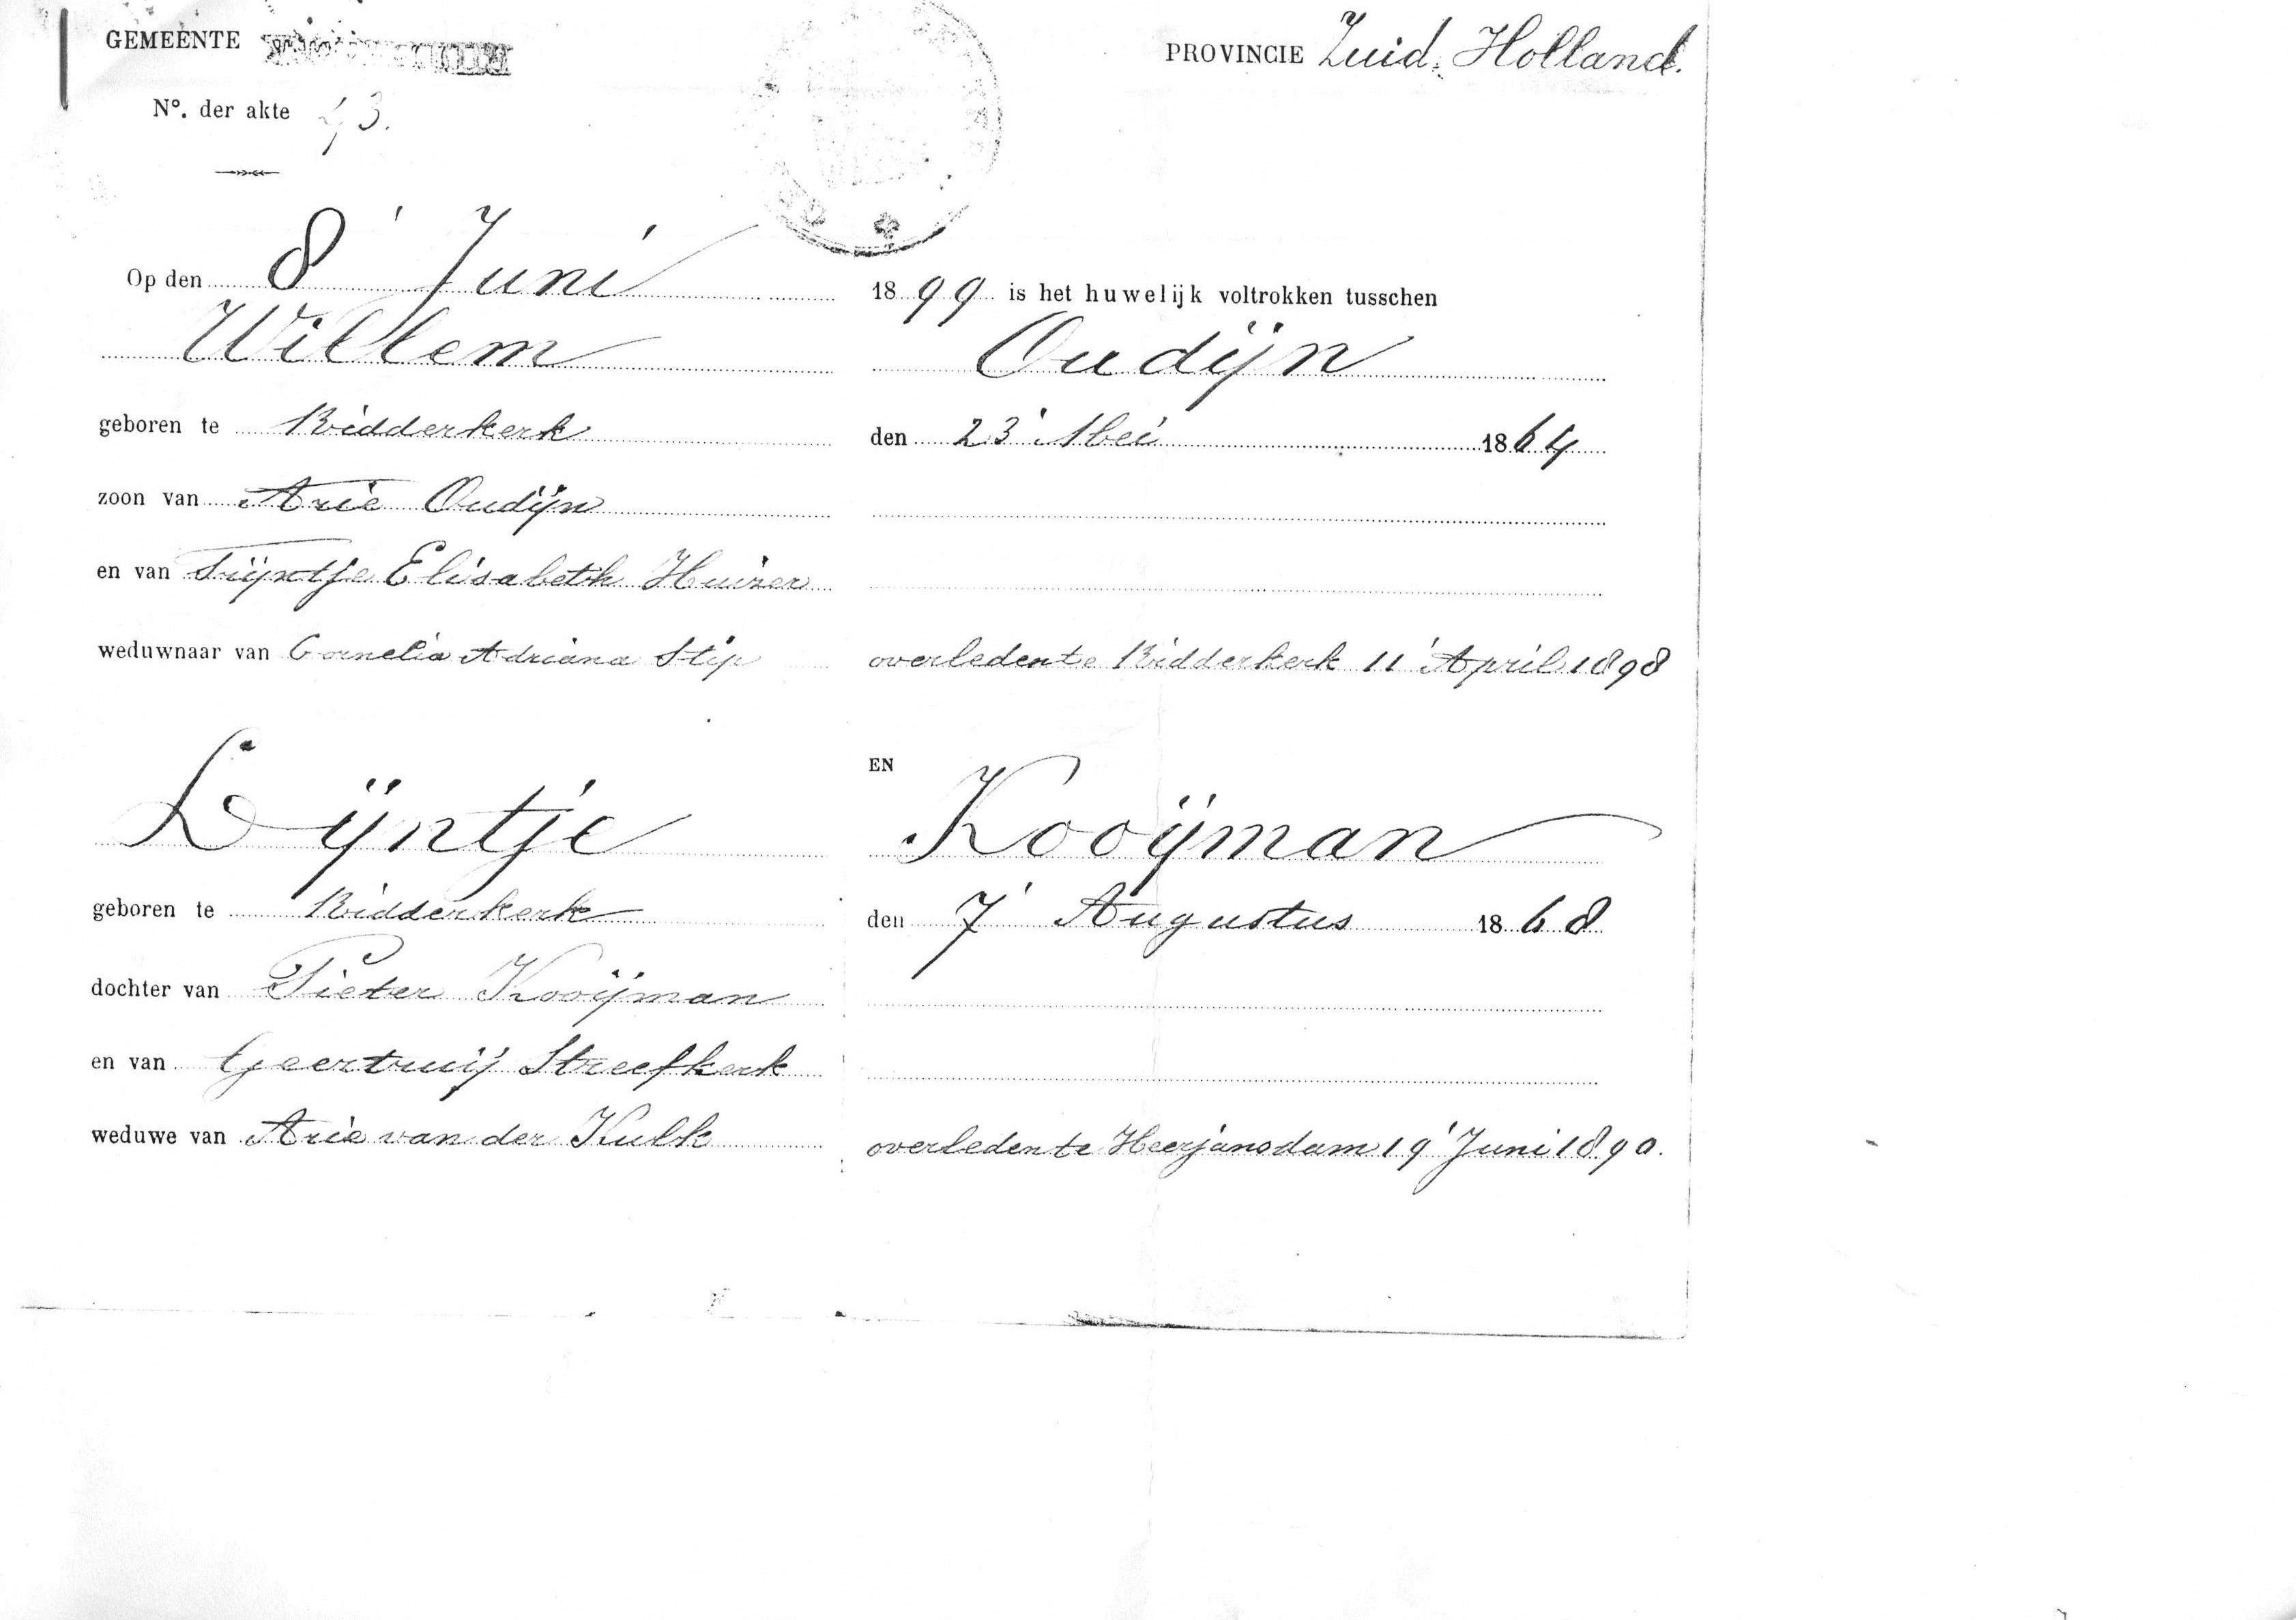 GEMEENTE PROVINCIE Zuid-Holland.
No. der akte 43.
Op den 8 Juni 1899 is het huwelijk voltrokken tusschen
Willem Oudijn
geboren te Ridderkerk den 23 Mei 1864
zoon van Arie Oudijn
en van Trijntje Elisabeth Huizer
weduwnaar van Cornelia Adriana Stip overleden te Ridderkerk 11 April 1898
EN
Lijntje Kooijman
geboren te Ridderkerk den 7 Augustus 1868
dochter van Pieter Kooijman
en van Geertruij Streefkerk
weduwe van Arie van der Kulk overleden te Heerjansdam 19 Juni 1890.